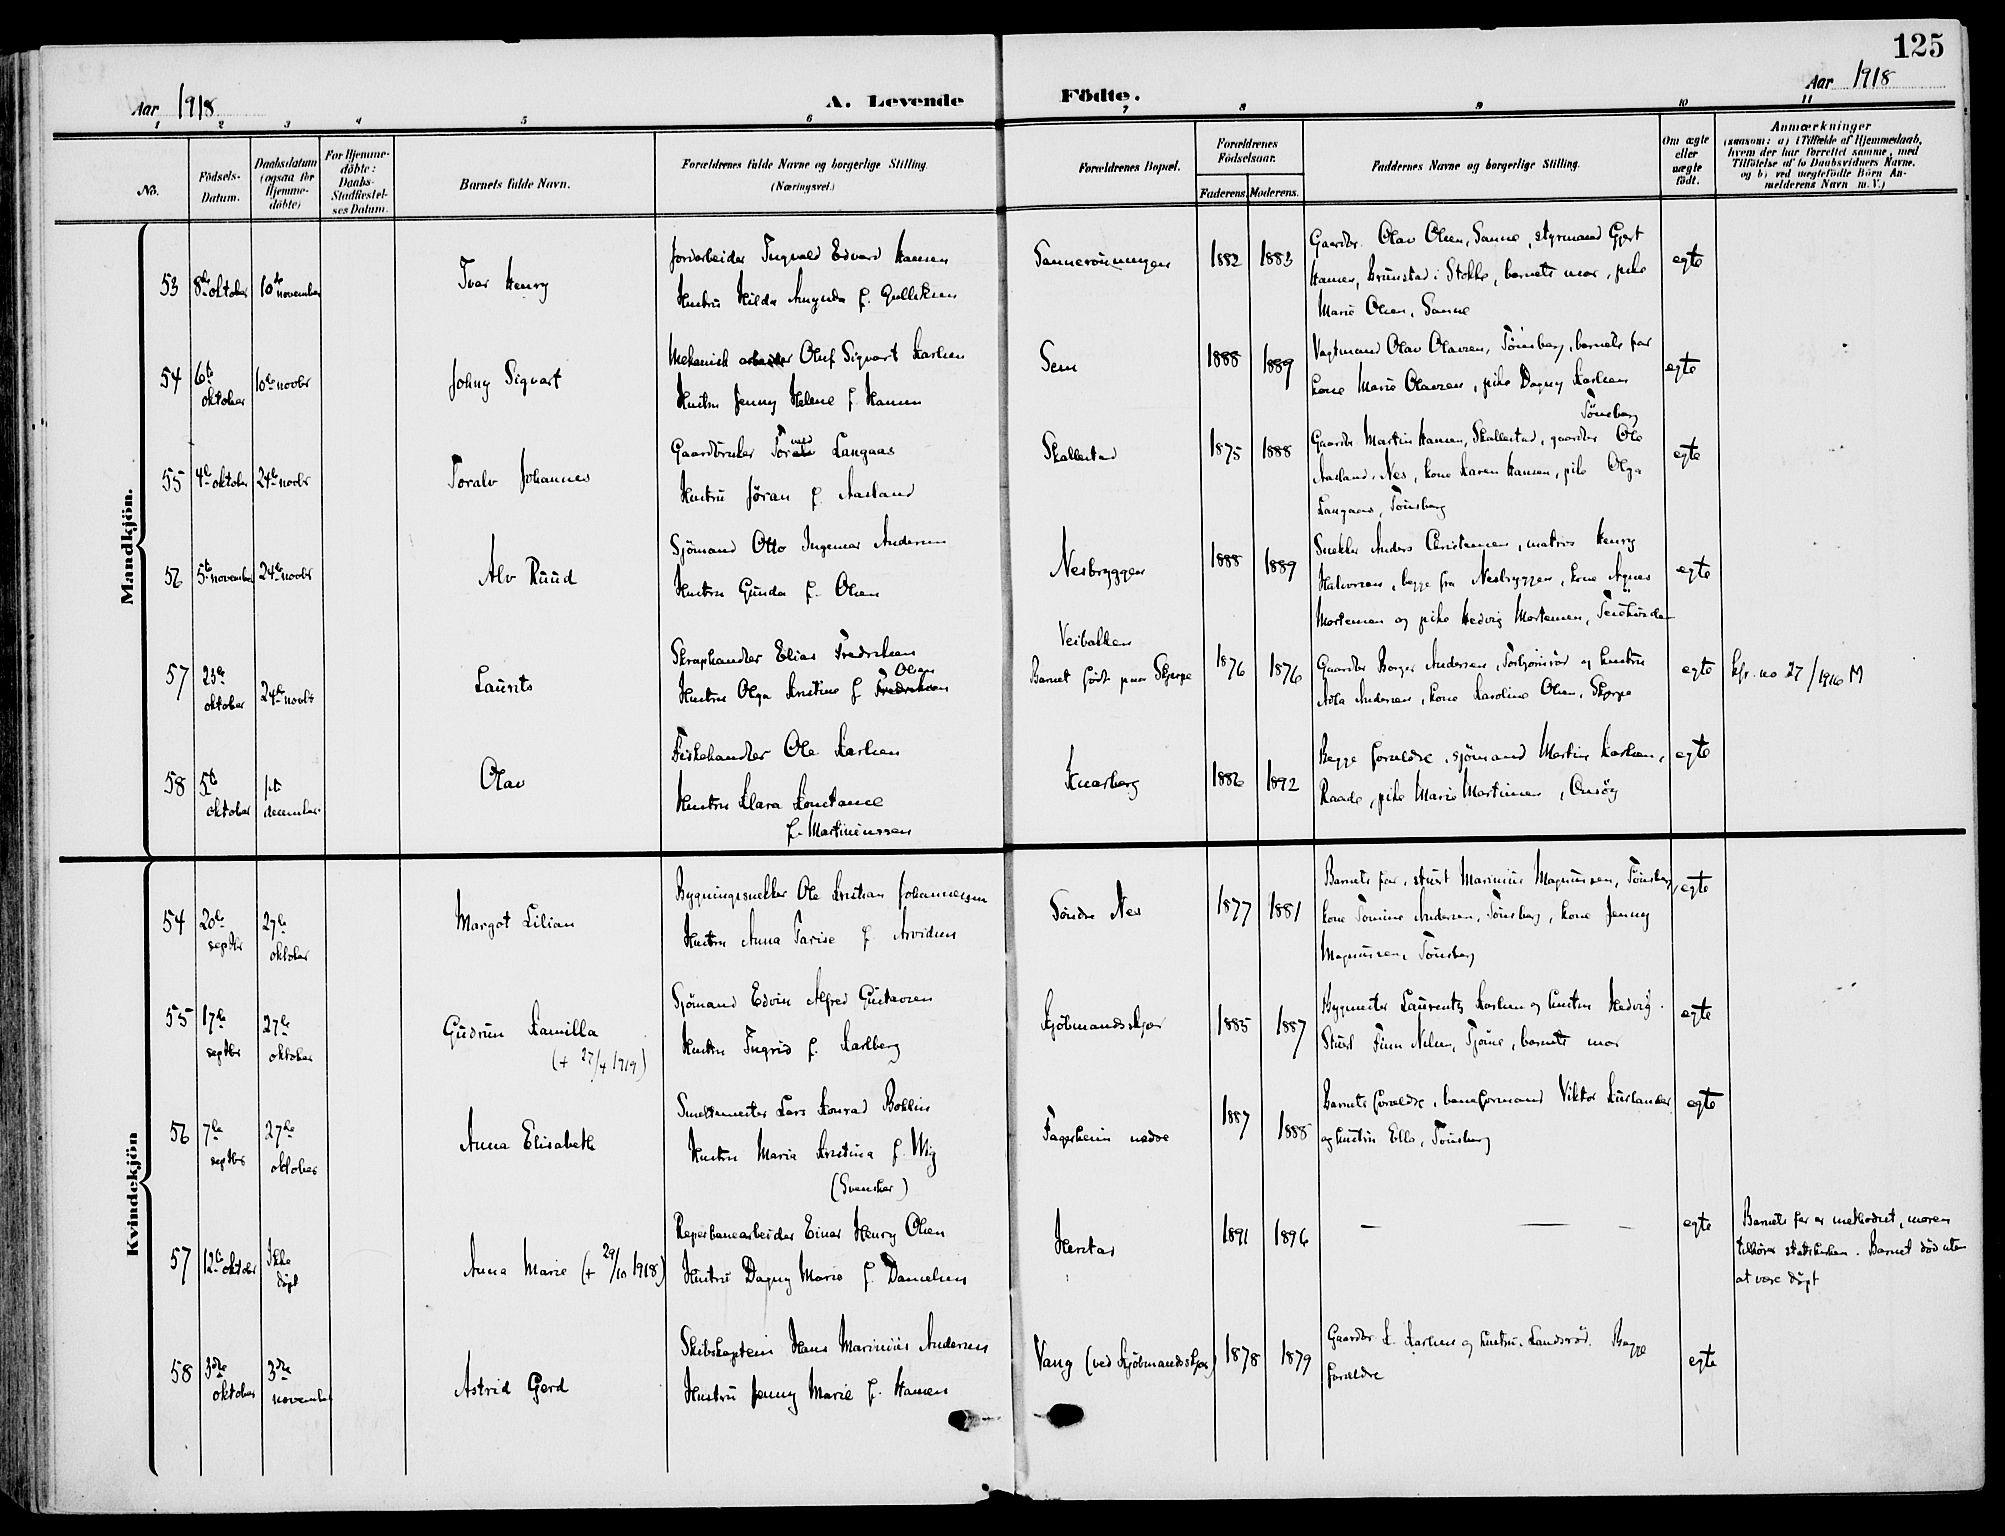 125
Aar 1918
A. Levende Födte.
Aar 1918
1 2 3 4 5 6 7 8 9 10 11
No.
Födsels-
Datum.
Daabsdatum
(ogsaa for
Hjemme-
döbte)
For Hjemme-
döbte:
Daabs-
Stadfæstel-
ses Datum.
Barnets fulde Navn.
Forældrenes fulde Navne og borgerlige Stilling.
(Næringsvei.)
Forældrenes Bopæl.
Forældrenes
Födselsaar.
Faderens. Moderens.
Faddernes Navne og borgerlige Stilling.
Om ægte
eller
uægte
født.
Anmærkninger
(saasom: a) i Tilfælde af Hjemmedaab,
hvem der har forrettet samme, med
Tilföielse af to Daabsvidners Navne,
og b) ved uægtefödte Börn An-
melderens Navn m. V.)
Mandkjön.
53 8de oktober 10de november
Ivar Henry
Jordarbeider Ingvald Edvard Hansen
Hustru Hilda Amanda f. Gulliksen
1882 1883
Gaardbr. Olav Olsen, Sanne, styrmand Gjert
Hansen, Brunstad i Stokke, barnets mor, pike
Marie Olsen, Sanne
egte
54 6te
oktober
10de novbr
Johny Sigvart
Mekanisk arbeider Oluf Sigvart Karlsen
Hustru Jenny Helene f. Hansen
Sem
1888 1889
Vagtmand Olav Olavsen, Tönsberg, barnets far
kone Marie Olavsen, pike Dagny Karlsen
Tönsberg
egte
55 4de oktober 24de novbr
Toralv Johannes
Gaardbruker Langaas
Hustru Jöran f. Aasland
Skallestad
1875 1888
Gaardbr Martin Hansen, Skallestad, gaardbr Ole
Aasland, Nes, kone Karen Hansen, pike Olga
Langaas, Tönsberg
egte
56 5te november 24de novbr
Alv Ruud
Sjömand Otto Ingemar Andersen
Hustru Gunda f. Olsen
Nesbryggen
1888 1889
Snekker Anders Christensen, matros Henry
Halvorsen, begge fra Nesbryggen, kone Agnes
Mortensen og pike Hedvig Mortensen,
egte
57 23de
oktober
24de novbr
Laurits
Skraphandler Elias Fredriksen
Olsen
Hustru Olga Kristine f. Fredriksen
Veibakken
Barnet født paa Skjerpe
1876 1876
Gaardbr Borger Andersen, og hustru
Adla Andersen, kone Karoline Olsen, Skjerpe
egte
kfr. no 27/1916 M
58 5te
oktober
1ste
december
Olav
Fiskehandler Ole Karlsen
Hustru Klara Konstance
f. Martiniussen
Knarberg
1886 1892
Begge forældre, sjömand Martin Karlsen,
Raade, pike Marie Martinsen,
egte
Kvindekjön
54 20de
septbr
27de
oktober
Margot Lilian
Bygningssnekker Ole Kristian Johannesen
Hustru Anna f. Arvidsen
Söndre Nes
1877 1881
Barnets far, stuert Marinius Magnussen, Tönsberg,
kone Tomine Andersen, Tönsberg, kone Jenny
Magnussen, Tönsberg
egte
55 17de
septbr
27de
oktober
Gudrun Kamilla
(+ 27/4 1919)
Sjömand Edvin Alfred Gustavsen
Hustru Ingrid f. Karlberg
Kjöbmandsskjær
1885 1887
Bygmester Laurentz Karlsen og hustru Hedvig.
Stuert Finn Nilsen, Tjöme, barnets mor
egte
56 7de
septbr
27de
oktober
Anna Elisabeth
Smeltemester Lars Konrad Boklin
Hustru Maria Kristina f. Wiig
(Svensker)
Fagerheim nedre
1887 1888
Barnets forældre, baneformand Viktor Kurlander
og hustru Ella, Tönsberg
egte
57 12te oktober Ikke
døpt
Anna Marie (+ 29/10 1918)
Reperbanearbeider Einar Henry Olsen
Hustru Dagny Marie f. Danielsen
Herstad
1891 1896
— — —
egte
Barnets far er methodist, moren
tilhører statskirken. Barnet död uten
at være døpt
58 3dje
oktober
3dje
november
Astrid Gerd
Skibskaptein Hans Marinius Andersen
Hustru Jenny Marie f. Hansen
Vang (ved Kjöbmandsskjær)
1878 1879
Gaardbr K. Karlsen og hustru, Landsröd. Begge
forældre
egte